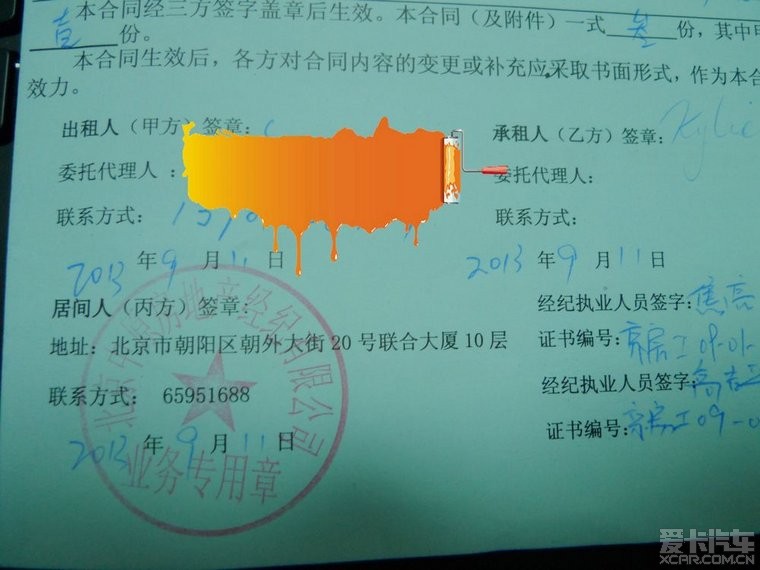 本合同经三方签字盖章后生效。本合同（及附件）一式叁份，其中甲
壹份。
本合同生效后，各方对合同内容的变更或补充应采取书面形式，作为本合
效力。
出租人（甲方）签章：
承租人（乙方）签章：Kylie
委托代理人：
委托代理人：
联系方式：
联系方式：
2013年9月11日
2013年9月11日
居间人（丙方）签章：
经纪执业人员签字：焦亮
地址：北京市朝阳区朝外大街20号联合大厦10层
证书编号：京房工09-01-
联系方式：65951688
经纪执业人员签字：高
证书编号：京房工09-0
2013年9月11日
北京中原房地产经纪有限公司
业务专用章
爱卡汽车
XCAR.COM.CN